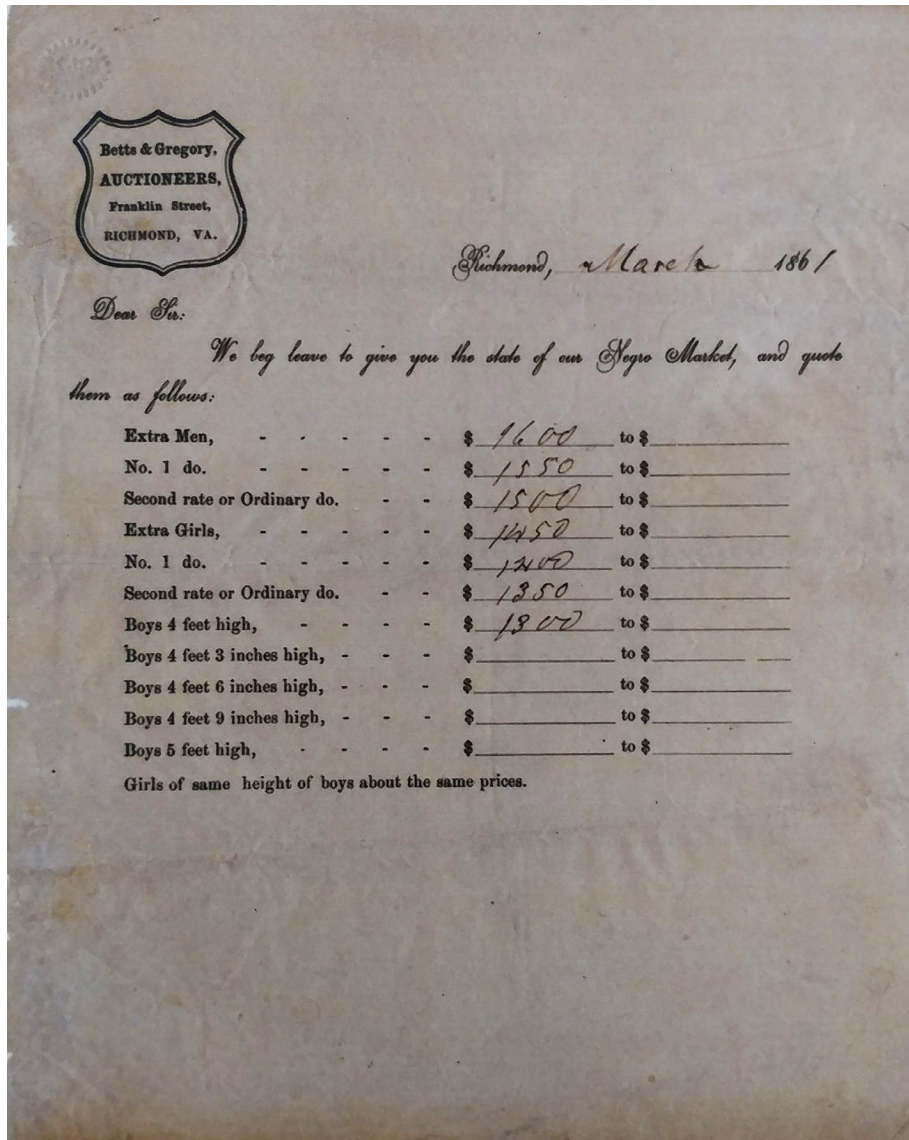 Betts & Gregory,
AUCTIONEERS,
Franklin Street,
RICHMOND, VA.
Richmond, March 1861
Dear Sir:
We beg leave to give you the state of our Negro Market, and quote
them as follows:
Extra Men, - - - - - $ 1600 to $
No. 1 do. - - - - - $ 1550 to $
Second rate or Ordinary do. - - $ 1500 to $
Extra Girls, - - - - - $ 1450 to $
No. 1 do. - - - - - $ 1400 to $
Second rate or Ordinary do. - - $ 1350 to $
Boys 4 feet high, - - - - $ 1300 to $
Boys 4 feet 3 inches high, - - - $ to $
Boys 4 feet 6 inches high, - - - $ to $
Boys 4 feet 9 inches high, - - - $ to $
Boys 5 feet high, - - - - $ to $
Girls of same height of boys about the same prices.